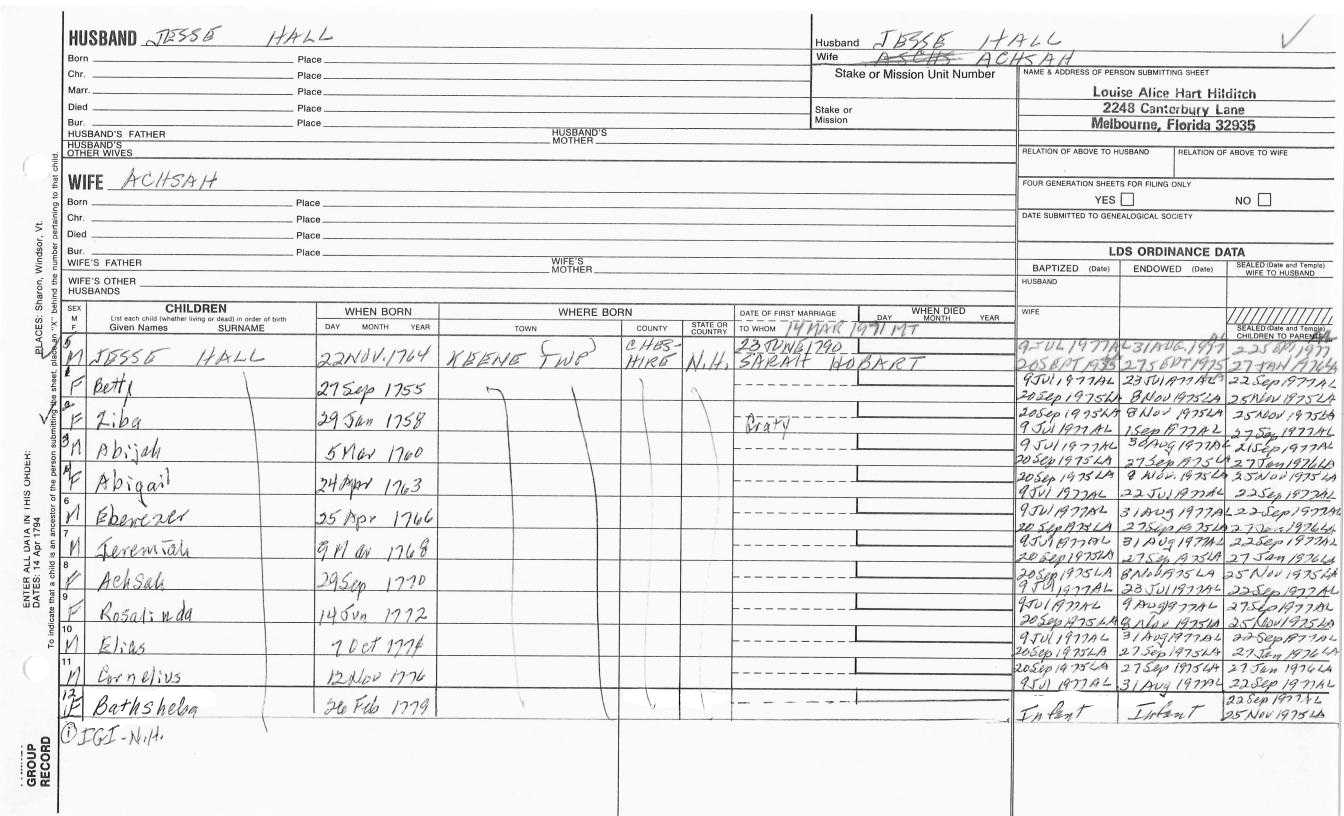 HUSBAND JESSE HALL
Born Place
Chr. Place
Marr. Place
Died Place
Bur. Place
HUSBAND'S FATHER HUSBAND'S MOTHER
HUSBAND'S OTHER WIVES
Husband JESSE HALL
Wife ACHSAH
Stake or Mission Unit Number
Stake or Mission
NAME & ADDRESS OF PERSON SUBMITTING SHEET
Louise Alice Hart Hilditch
2248 Canterbury Lane
Melbourne, Florida 32935
RELATION OF ABOVE TO HUSBAND RELATION OF ABOVE TO WIFE
FOUR GENERATION SHEETS FOR FILING ONLY
YES NO
DATE SUBMITTED TO GENEALOGICAL SOCIETY
WIFE ACHSAH
Born Place
Chr. Place
Died Place
Bur. Place
WIFE'S FATHER WIFE'S MOTHER
WIFE'S OTHER HUSBANDS
LDS ORDINANCE DATA
BAPTIZED (Date) ENDOWED (Date) SEALED (Date and Temple) WIFE TO HUSBAND
HUSBAND
WIFE
SEALED (Date and Temple) CHILDREN TO PARENTS
SEX M F CHILDREN WHEN BORN WHERE BORN DATE OF FIRST MARRIAGE WHEN DIED
List each child (whether living or dead) in order of birth
Given Names SURNAME DAY MONTH YEAR TOWN COUNTY STATE OR COUNTRY TO WHOM DAY MONTH YEAR
14 MAR 1791 MT
5 M JESSE HALL 22 NOV. 1764 KEENE TWP CHES-HIRE N.H. 23 JUNE 1790 SARAH HOBART
9 JUL 1977 AL 31 AUG. 1977 AL 22 SEPT 1977 AL
20 SEPT 1975 27 SEPT 1975 LA 27 JAN 1976 LA
F Betty 27 Sep 1755
9 Jul 1977 AL 23 Jul 1977 AL 22 Sep 1977 AL
20 Sep 1975 LA 8 Nov 1975 LA 25 Nov 1975 LA
2 F Ziba 29 Jan 1758 Craty
20 Sep 1975 LA 8 Nov 1975 LA 25 Nov 1975 LA
9 Jul 1977 AL 1 Sep 1977 AL 27 Sep 1977 AL
3 M Abijah 5 Mar 1760
9 Jul 1977 AL 30 Aug 1977 AL 21 Sep 1977 AL
20 Sep 1975 LA 27 Sep 1975 LA 27 Jan 1976 LA
4 F Abigail 24 Apr 1763
20 Sep 1975 LA 8 Nov. 1975 LA 25 Nov 1975 LA
9 Jul 1977 AL 22 Jul 1977 AL 22 Sep 1977 AL
6 M Ebenezer 25 Apr 1766
9 Jul 1977 AL 31 Aug 1977 AL 22 Sep 1977 AL
20 Sep 1975 LA 27 Sep 1975 LA 27 Jan 1976 LA
7 M Jeremiah 9 Mar 1768
9 Jul 1977 AL 31 Aug 1977 AL 22 Sep 1977 AL
20 Sep 1975 LA 27 Sep 1975 LA 27 Jan 1976 LA
8 F Achsah 29 Sep 1770
20 Sep 1975 LA 8 Nov 1975 LA 25 Nov 1975 LA
9 Jul 1977 AL 23 Jul 1977 AL 22 Sep 1977 AL
9 F Rosalinda 14 Jun 1772
9 Jul 1977 AL 9 Aug 1977 AL 27 Sep 1977 AL
20 Sep 1975 LA 8 Nov 1975 LA 25 Nov 1975 LA
10 M Elias 7 Oct 1774
9 Jul 1977 AL 31 Aug 1977 AL 22 Sep 1977 AL
20 Sep 1975 LA 27 Sep 1975 LA 27 Jan 1976 LA
11 M Cornelius 12 Nov 1776
20 Sep 1975 LA 27 Sep 1975 LA 27 Jan 1976 LA
9 Jul 1977 AL 31 Aug 1977 AL 22 Sep 1977 AL
12 F Bathsheba 26 Feb 1779
Infant Infant 22 Sep 1977 AL
25 Nov 1975 LA
① IGI-N.H.
GROUP RECORD
ENTER ALL DATA IN THIS ORDER:
DATES: 14 Apr 1794
PLACES: Sharon, Windsor, Vt.
To indicate that a child is an ancestor of the person submitting the sheet, place an "X" behind the number pertaining to that child